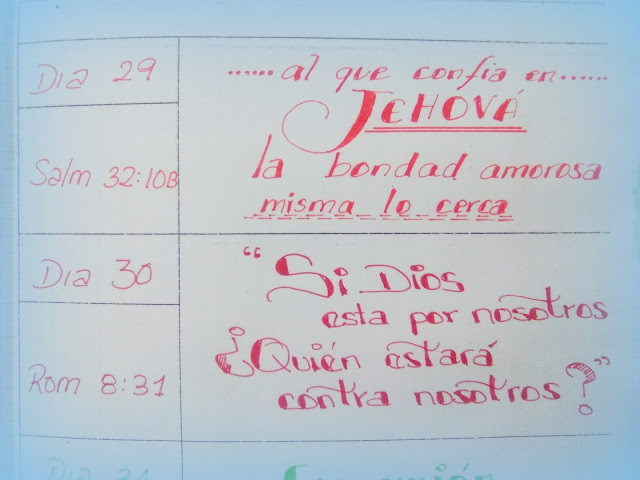 Dia 29
...... al que confia en......
JEHOVÁ
Salm 32:10B
la bondad amorosa
misma lo cerca
Dia 30
"Si Dios
esta por nosotros
Rom 8:31
¿Quién estará
contra nosotros?"
Dia 31